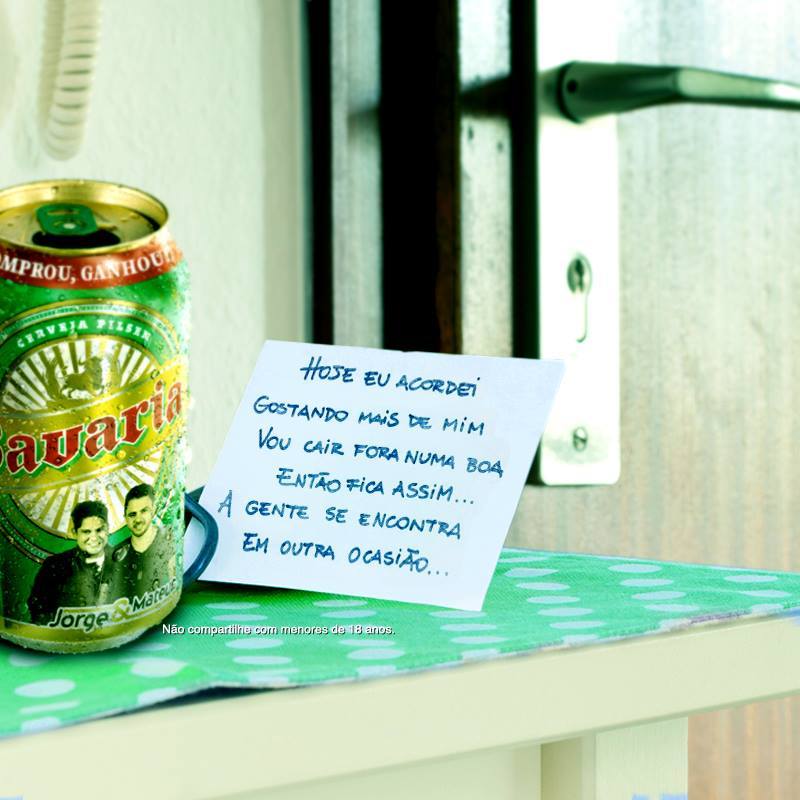 OMPROU, GANHOU!
CERVEJA PILSEN
Bavaria
Jorge & Mateus
HOJE EU ACORDEI
GOSTANDO MAIS DE MIM
VOU CAIR FORA NUMA BOA
ENTÃO FICA ASSIM...
A GENTE SE ENCONTRA
EM OUTRA OCASIÃO...
Não compartilhe com menores de 18 anos.